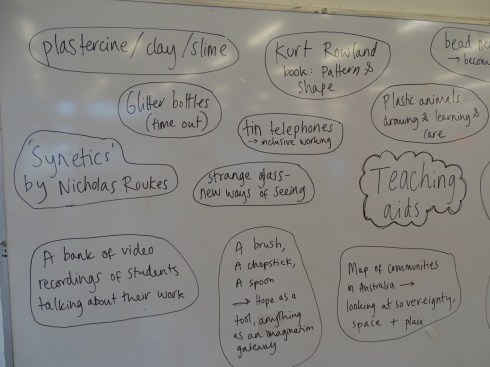 plastercine/clay/slime
Kurt Rowland
book: Pattern &
shape
bead
→ becom
Glitter bottles
(time out)
tin telephones
→ inclusive working
Plastic animals:
drawing & learning &
care
'Synetics'
by Nicholas Roukes
strange glass-
new ways of seeing
Teaching
aids
A bank of video
recordings of students
talking about their work
A brush,
A chopstick,
A spoon
→ Hope as a
tool, anything
as an imagination
gateway
Map of communities
in Australia →
looking at sovereignty,
space + place